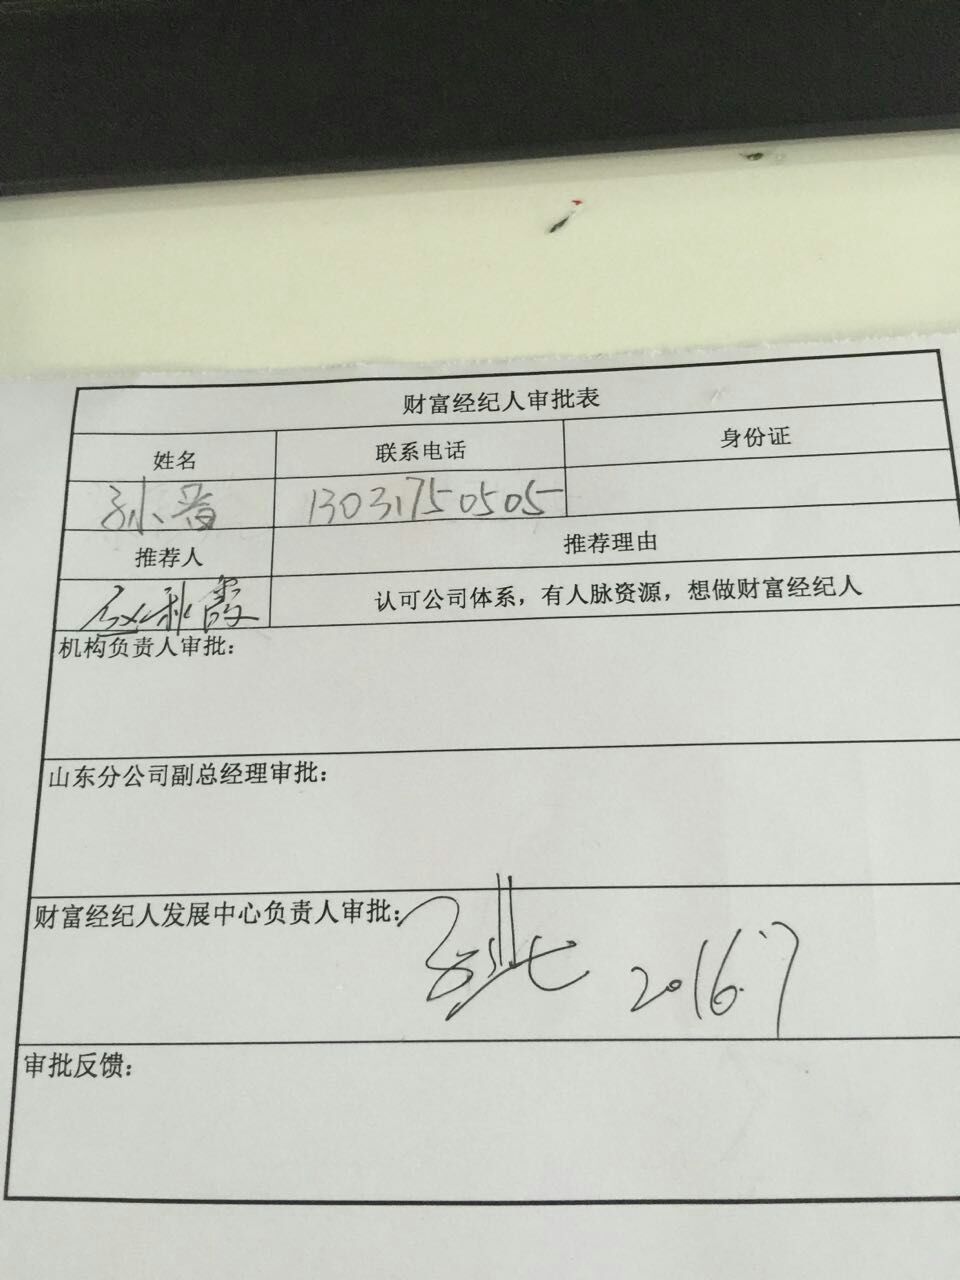 财富经纪人审批表
姓名 联系电话 身份证
孙 13031750505
推荐人 推荐理由
秋霞 认可公司体系，有人脉资源，想做财富经纪人
机构负责人审批：
山东分公司副总经理审批：
财富经纪人发展中心负责人审批：
2016.7
审批反馈：